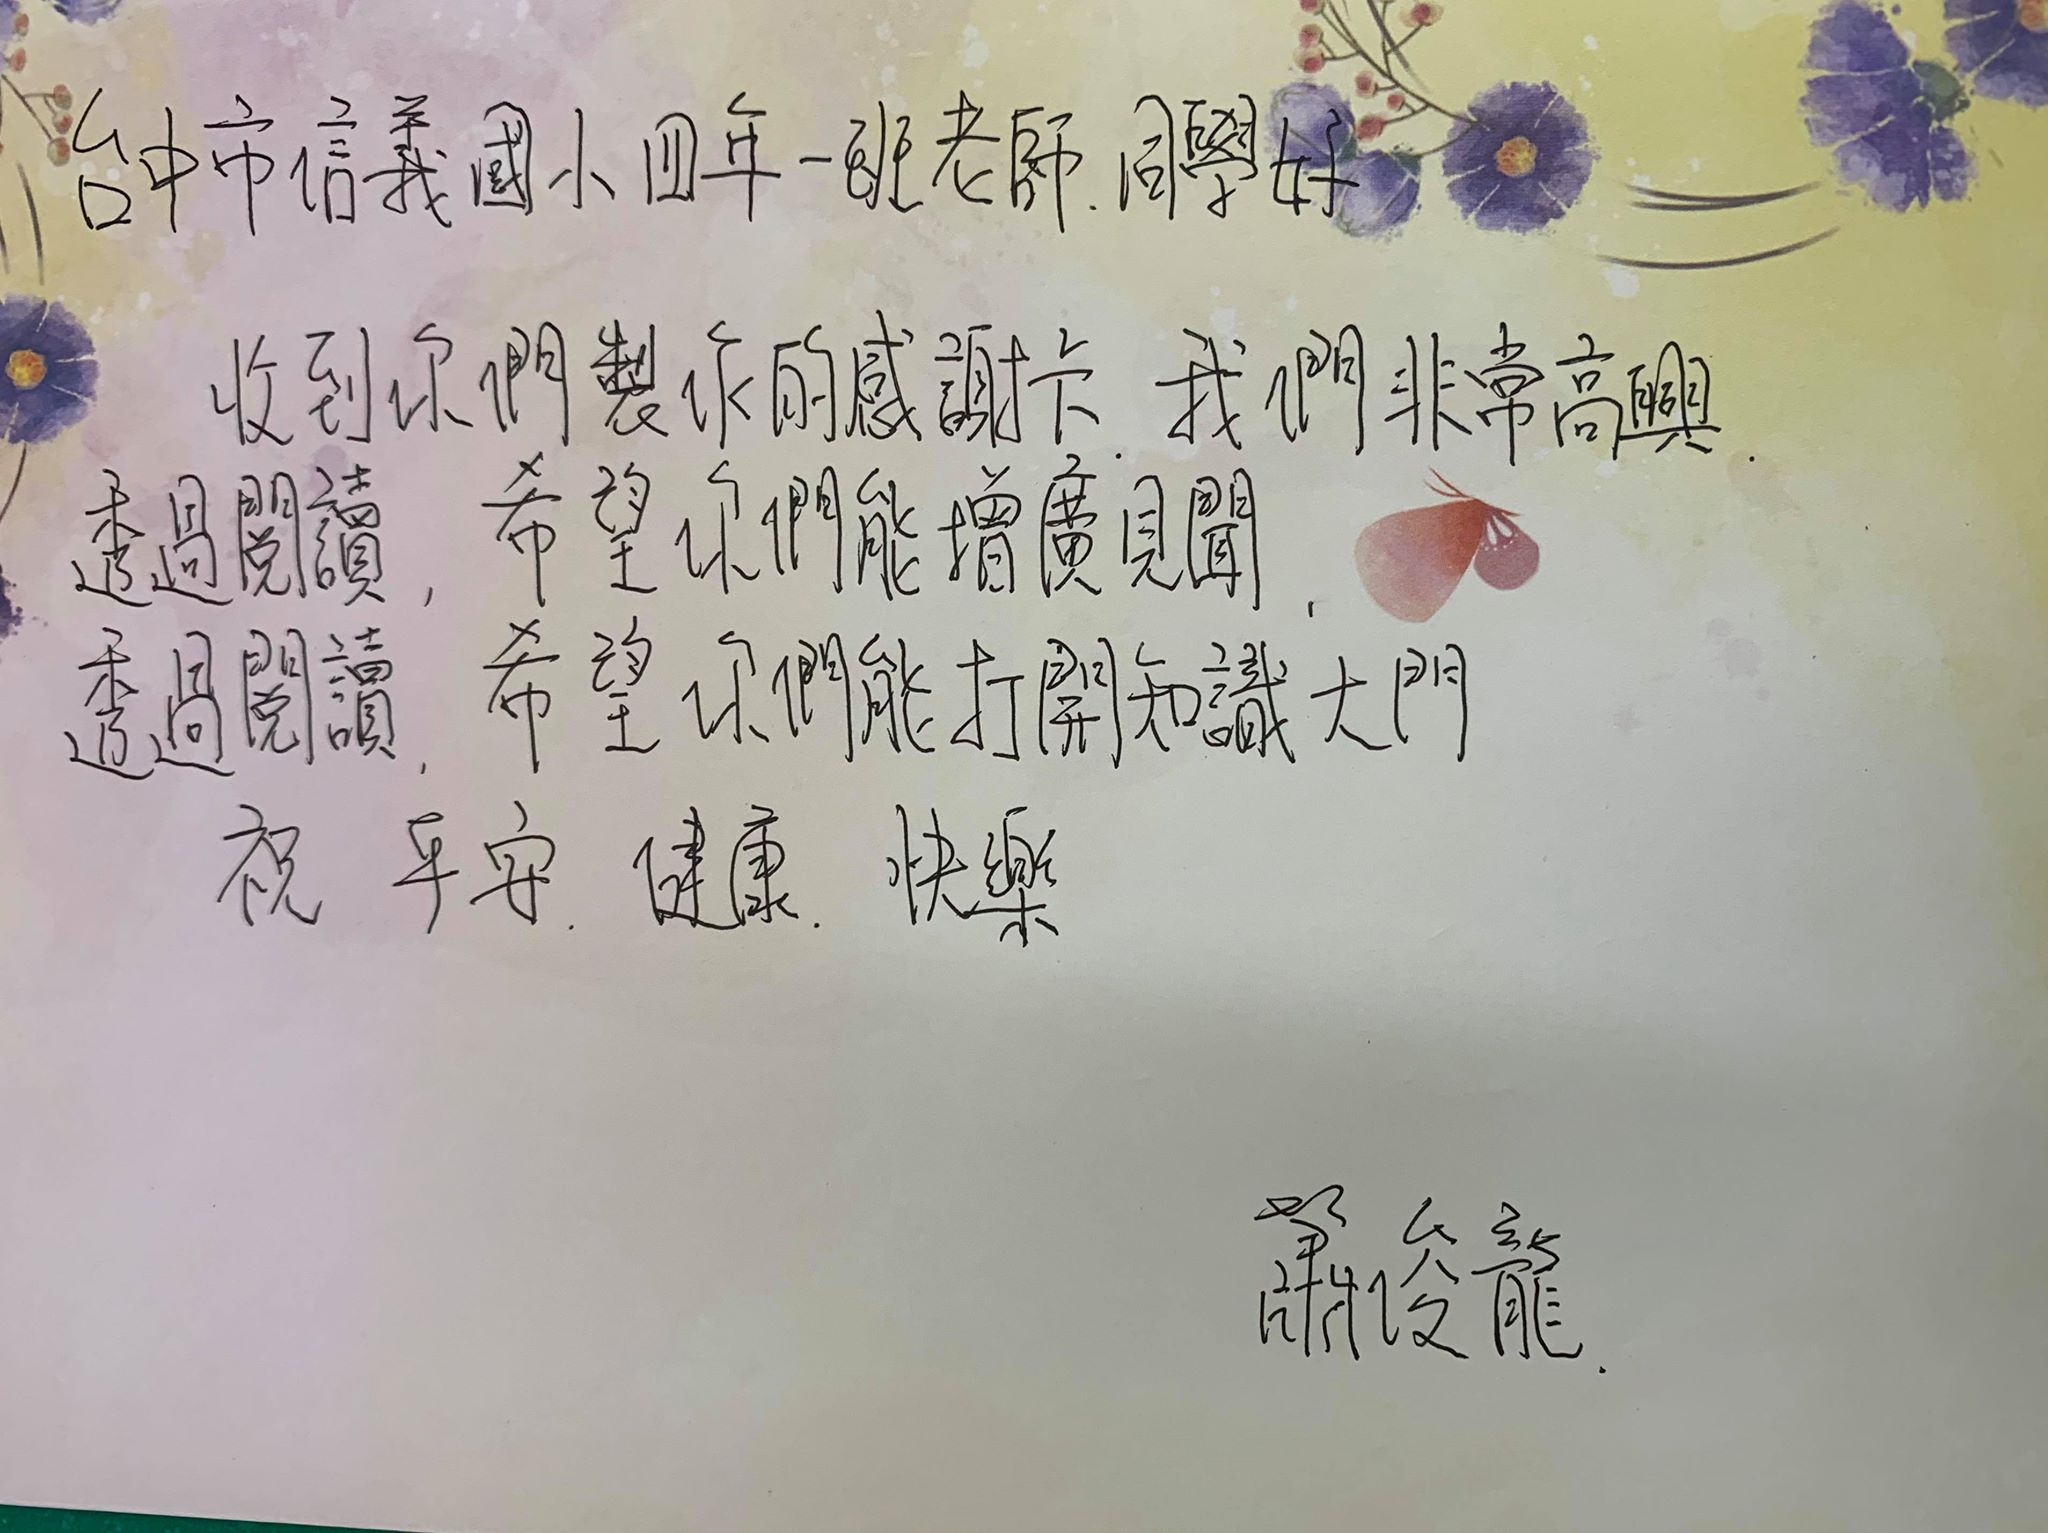 台中市信義國小四年一班老師.同學好
收到你們製作的感謝卡.我們非常高興.
透過閱讀,希望你們能增廣見聞,
透過閱讀,希望你們能打開知識大門
祝 平安.健康.快樂
蕭俊龍.